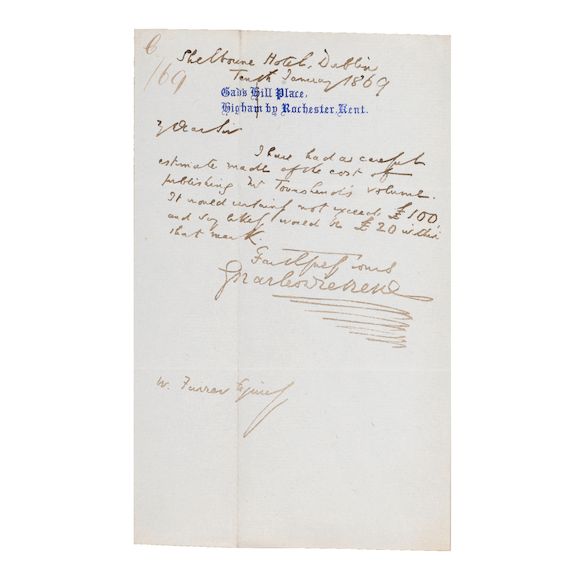 6
/69
Shelbourne Hotel, Dublin
Tenth January 1869
Gad's Hill Place,
Higham by Rochester, Kent.
Dear Sir
I have had a careful
estimate made of the cost of
publishing Mr Townshend's volume.
It would certainly not exceed £100
and very likely would be £20 within
that mark.
Faithfully Yours
Charles Dickens
W. Farrer Esquire